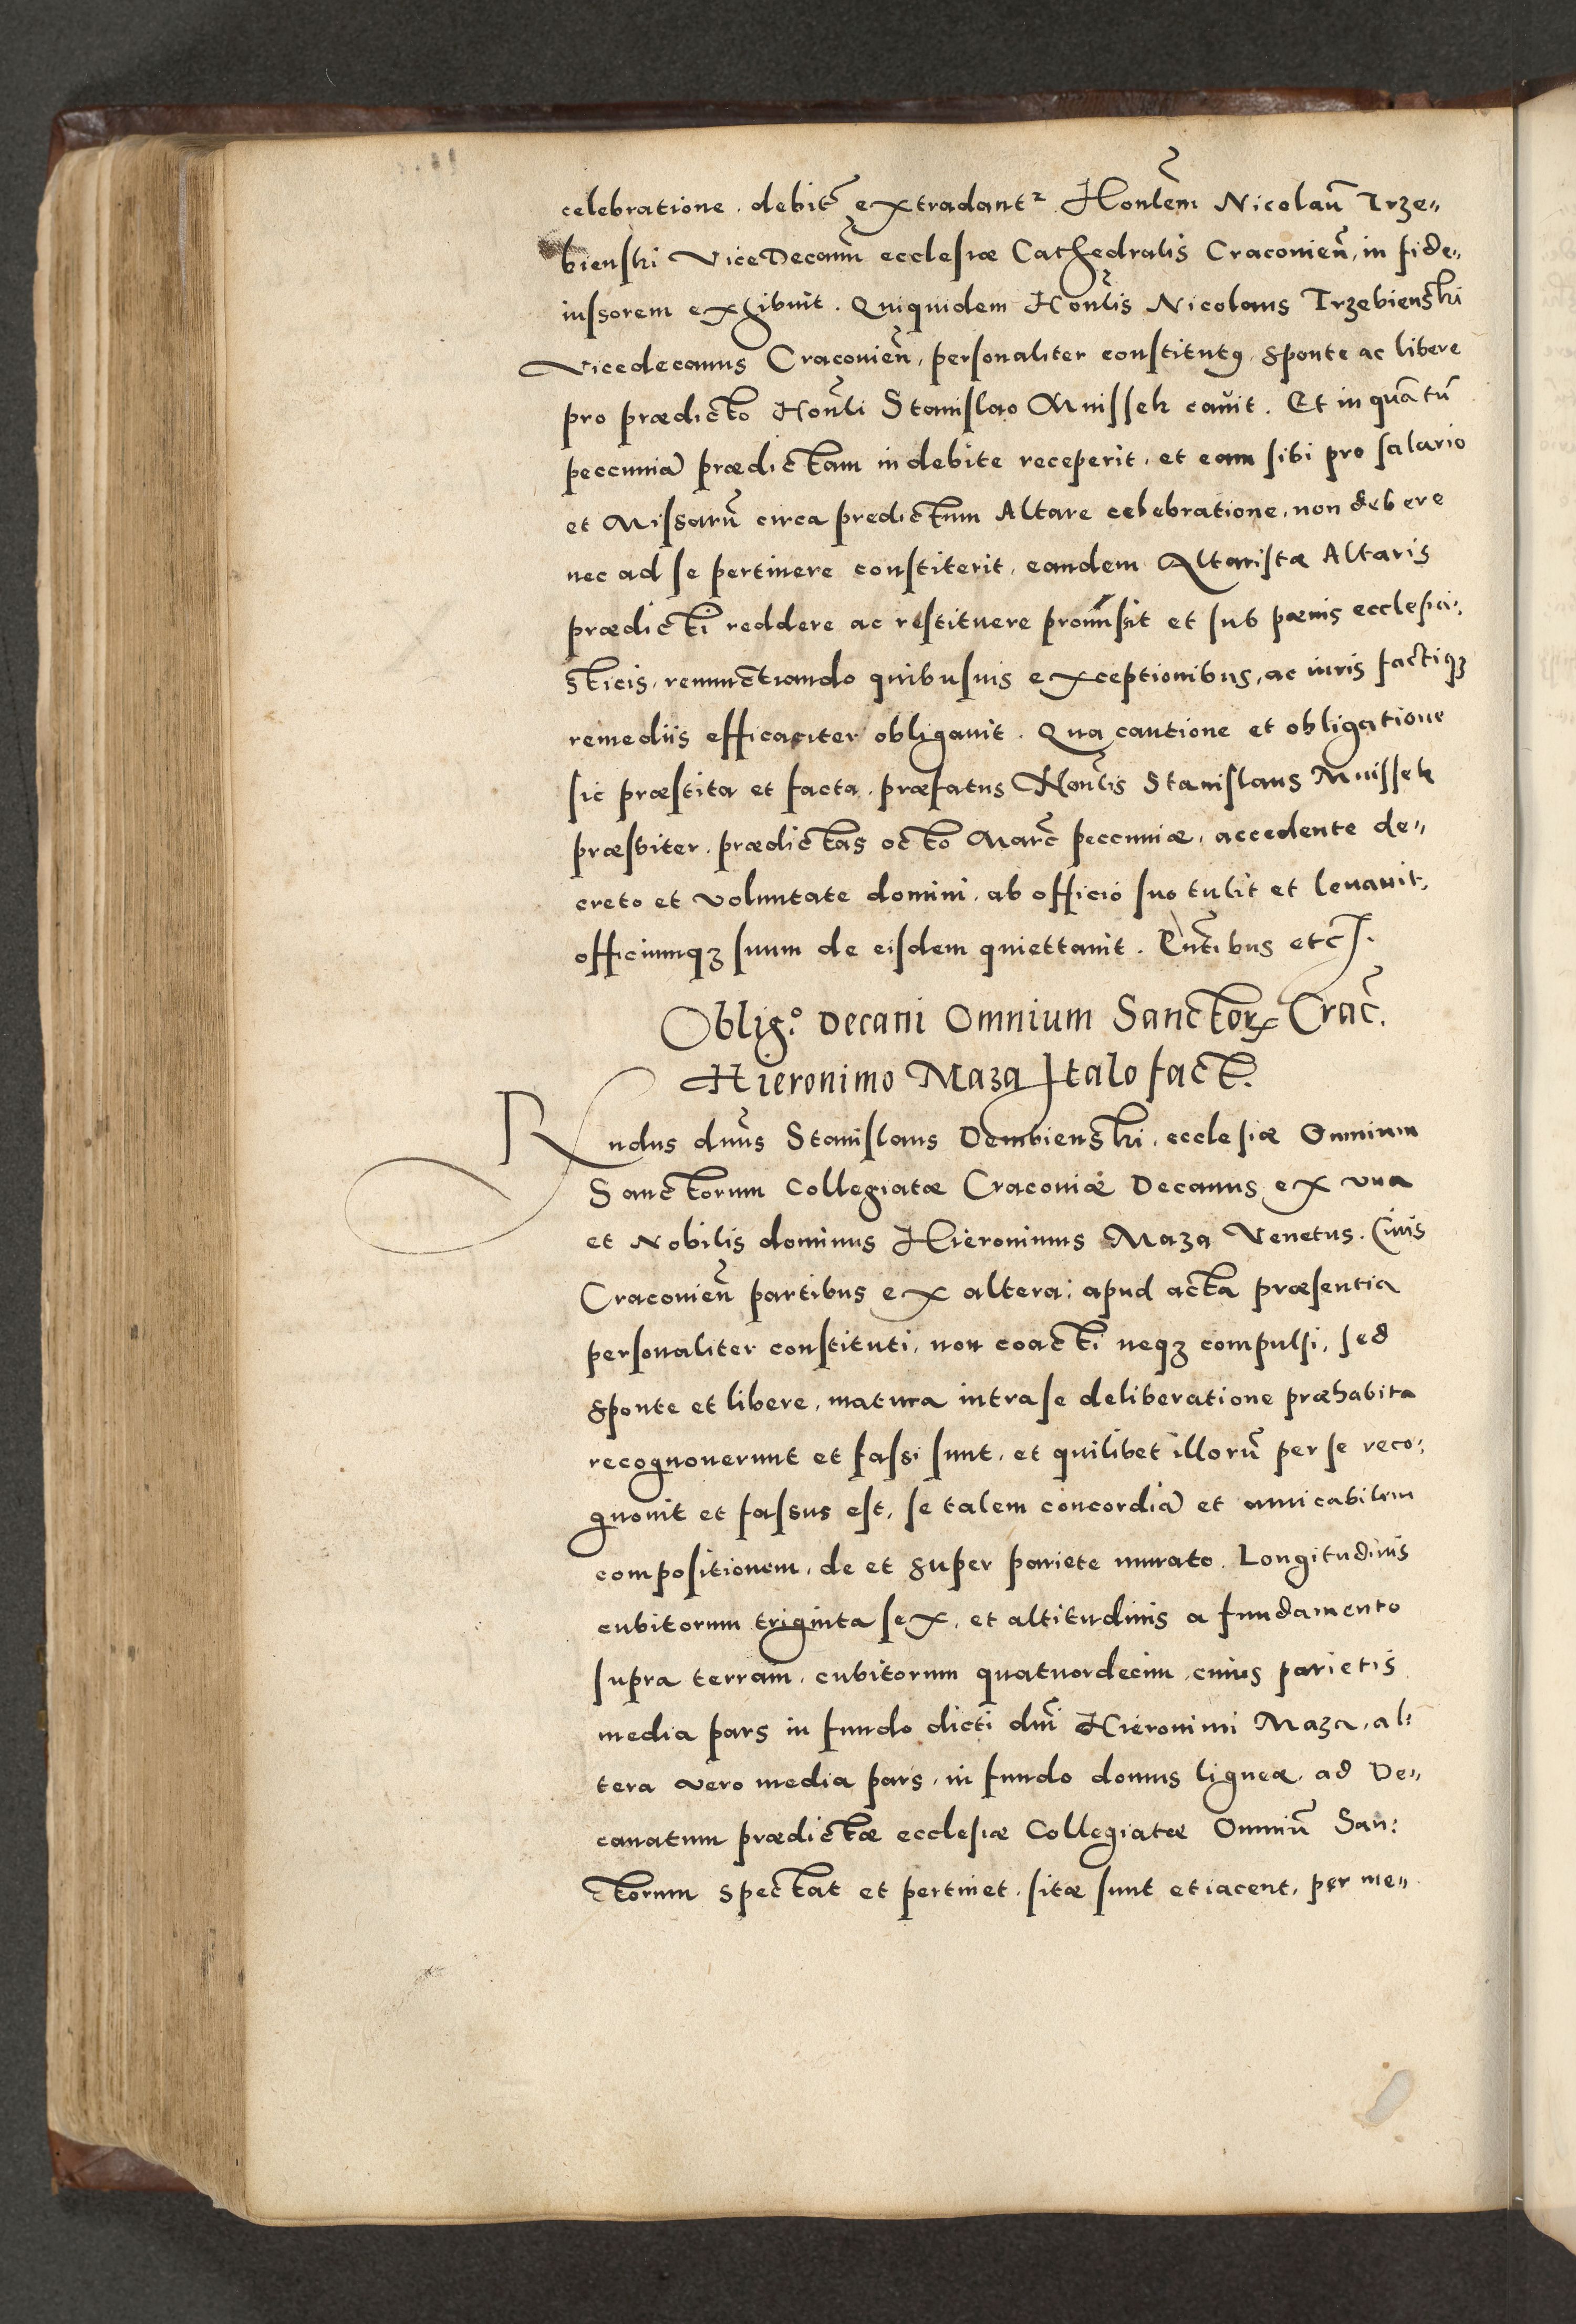 celebratione. debit̃ extradant². Honlẽm Nicolaũ Trze„
bienski ViceDecanũ ecclesiæ Cathedralis Craconieñ, in fide„
iussorem exhibuit. Quiquidem Honl̃is Nicolaus Trzebienski
Vicedecanus Craconieñ, personaliter constitutꝰ, sponte ac libere
pro prædicto Honl̃i Stanislao Mnissek cauit. Et in quãtũ
peccuniã prædictam indebite receperit, et eam sibi pro salario
et Missarũ circa predictum Altare celebratione, non debere
nec ad se pertinere constiterit, eandem Altaristæ Altaris
prædicti reddere ac restituere promisit et sub pænis ecclesia:
sticis, renunctiando quibusuis exceptionibus, ac iuris factiqꝫ
remediis efficaciter obligauit. Qua cautione et obligatione
sic præstita et facta. præfatus Honl̃is Stanislaus Mnissek
præsbiter. prædictas octo Marc̃ peccuniæ, accedente de„
creto et voluntate domini. ab officio suo tulit et leuauit,
officiumqꝫ suum de eisdem quiettauit. P̃ntibus etc̃.
Oblig.º Decani Omnium Sanctorꝝ Crac̃.
Hieronimo Maza Italo fact̃.
Rndus dñus Stanislaus Dembienski, ecclesiæ Omnium
Sanctorum Collegiatæ Craconiæ Decanus ex vna
et Nobilis dominus Hieronimus Maza Venetus. Ciuis
Craconieñ partibus ex altera: apud acta præsentia
personaliter constituti, non coacti neqꝫ compulsi, sed
sponte et libere, matura intra se deliberatione præhabita
recognouerunt et fassi sunt, et quilibet illorũ per se reco:
gnouit et fassus est, se talem concordiã et amicabilem
compositionem, de et super pariete murato. Longitudinis
cubitorum triginta sex, et altitudinis a fundamento
supra terram, cubitorum quatuordecim cuius parietis
media pars in fundo dicti dñi Hieronimi Maza, al:
tera vero media pars, in fundo domus ligneæ, ad De„
canatum prædictæ ecclesiæ Collegiatæ Omniũ San:
ctorum spectat et pertinet, sitæ sunt et iacent, per me„